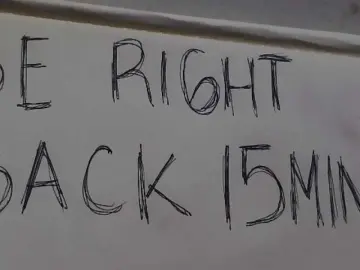 BE RIGHT
BACK 15 MIN